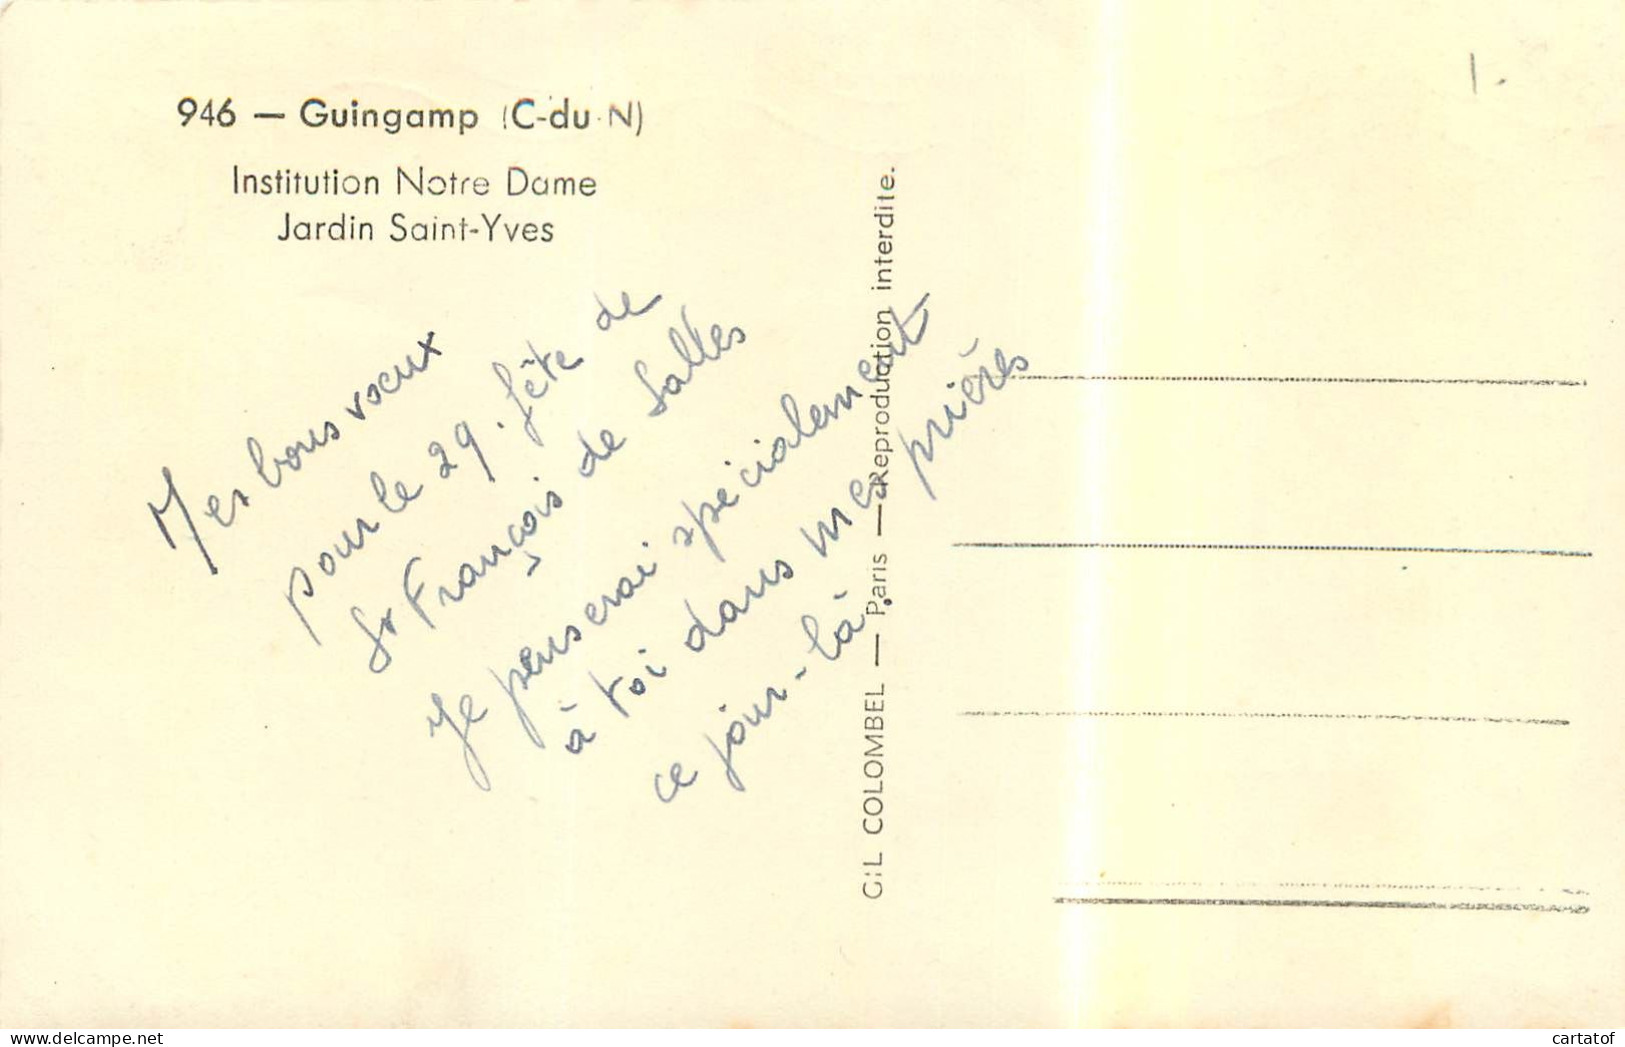 946 — Guingamp (C-du-N)
Institution Notre Dame
Jardin Saint-Yves
Mes bons vœux
pour le 29. fête de
St François de Salles
Je penserai spécialement
à toi dans mes prières
ce jour-là.
GIL COLOMBEL — Paris — Reproduction interdite.
1.
cartatof